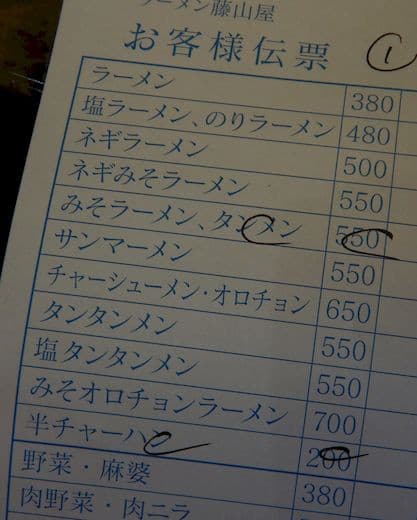 ラーメン藤山屋
お客様伝票 ①
ラーメン 380
塩ラーメン、のりラーメン 480
ネギラーメン 500
ネギみそラーメン 550
みそラーメン、タンメン 550
サンマーメン 550
チャーシューメン・オロチョン 650
タンタンメン 550
塩タンタンメン 550
みそオロチョンラーメン 700
半チャーハン 200
野菜・麻婆 380
肉野菜・肉ニラ